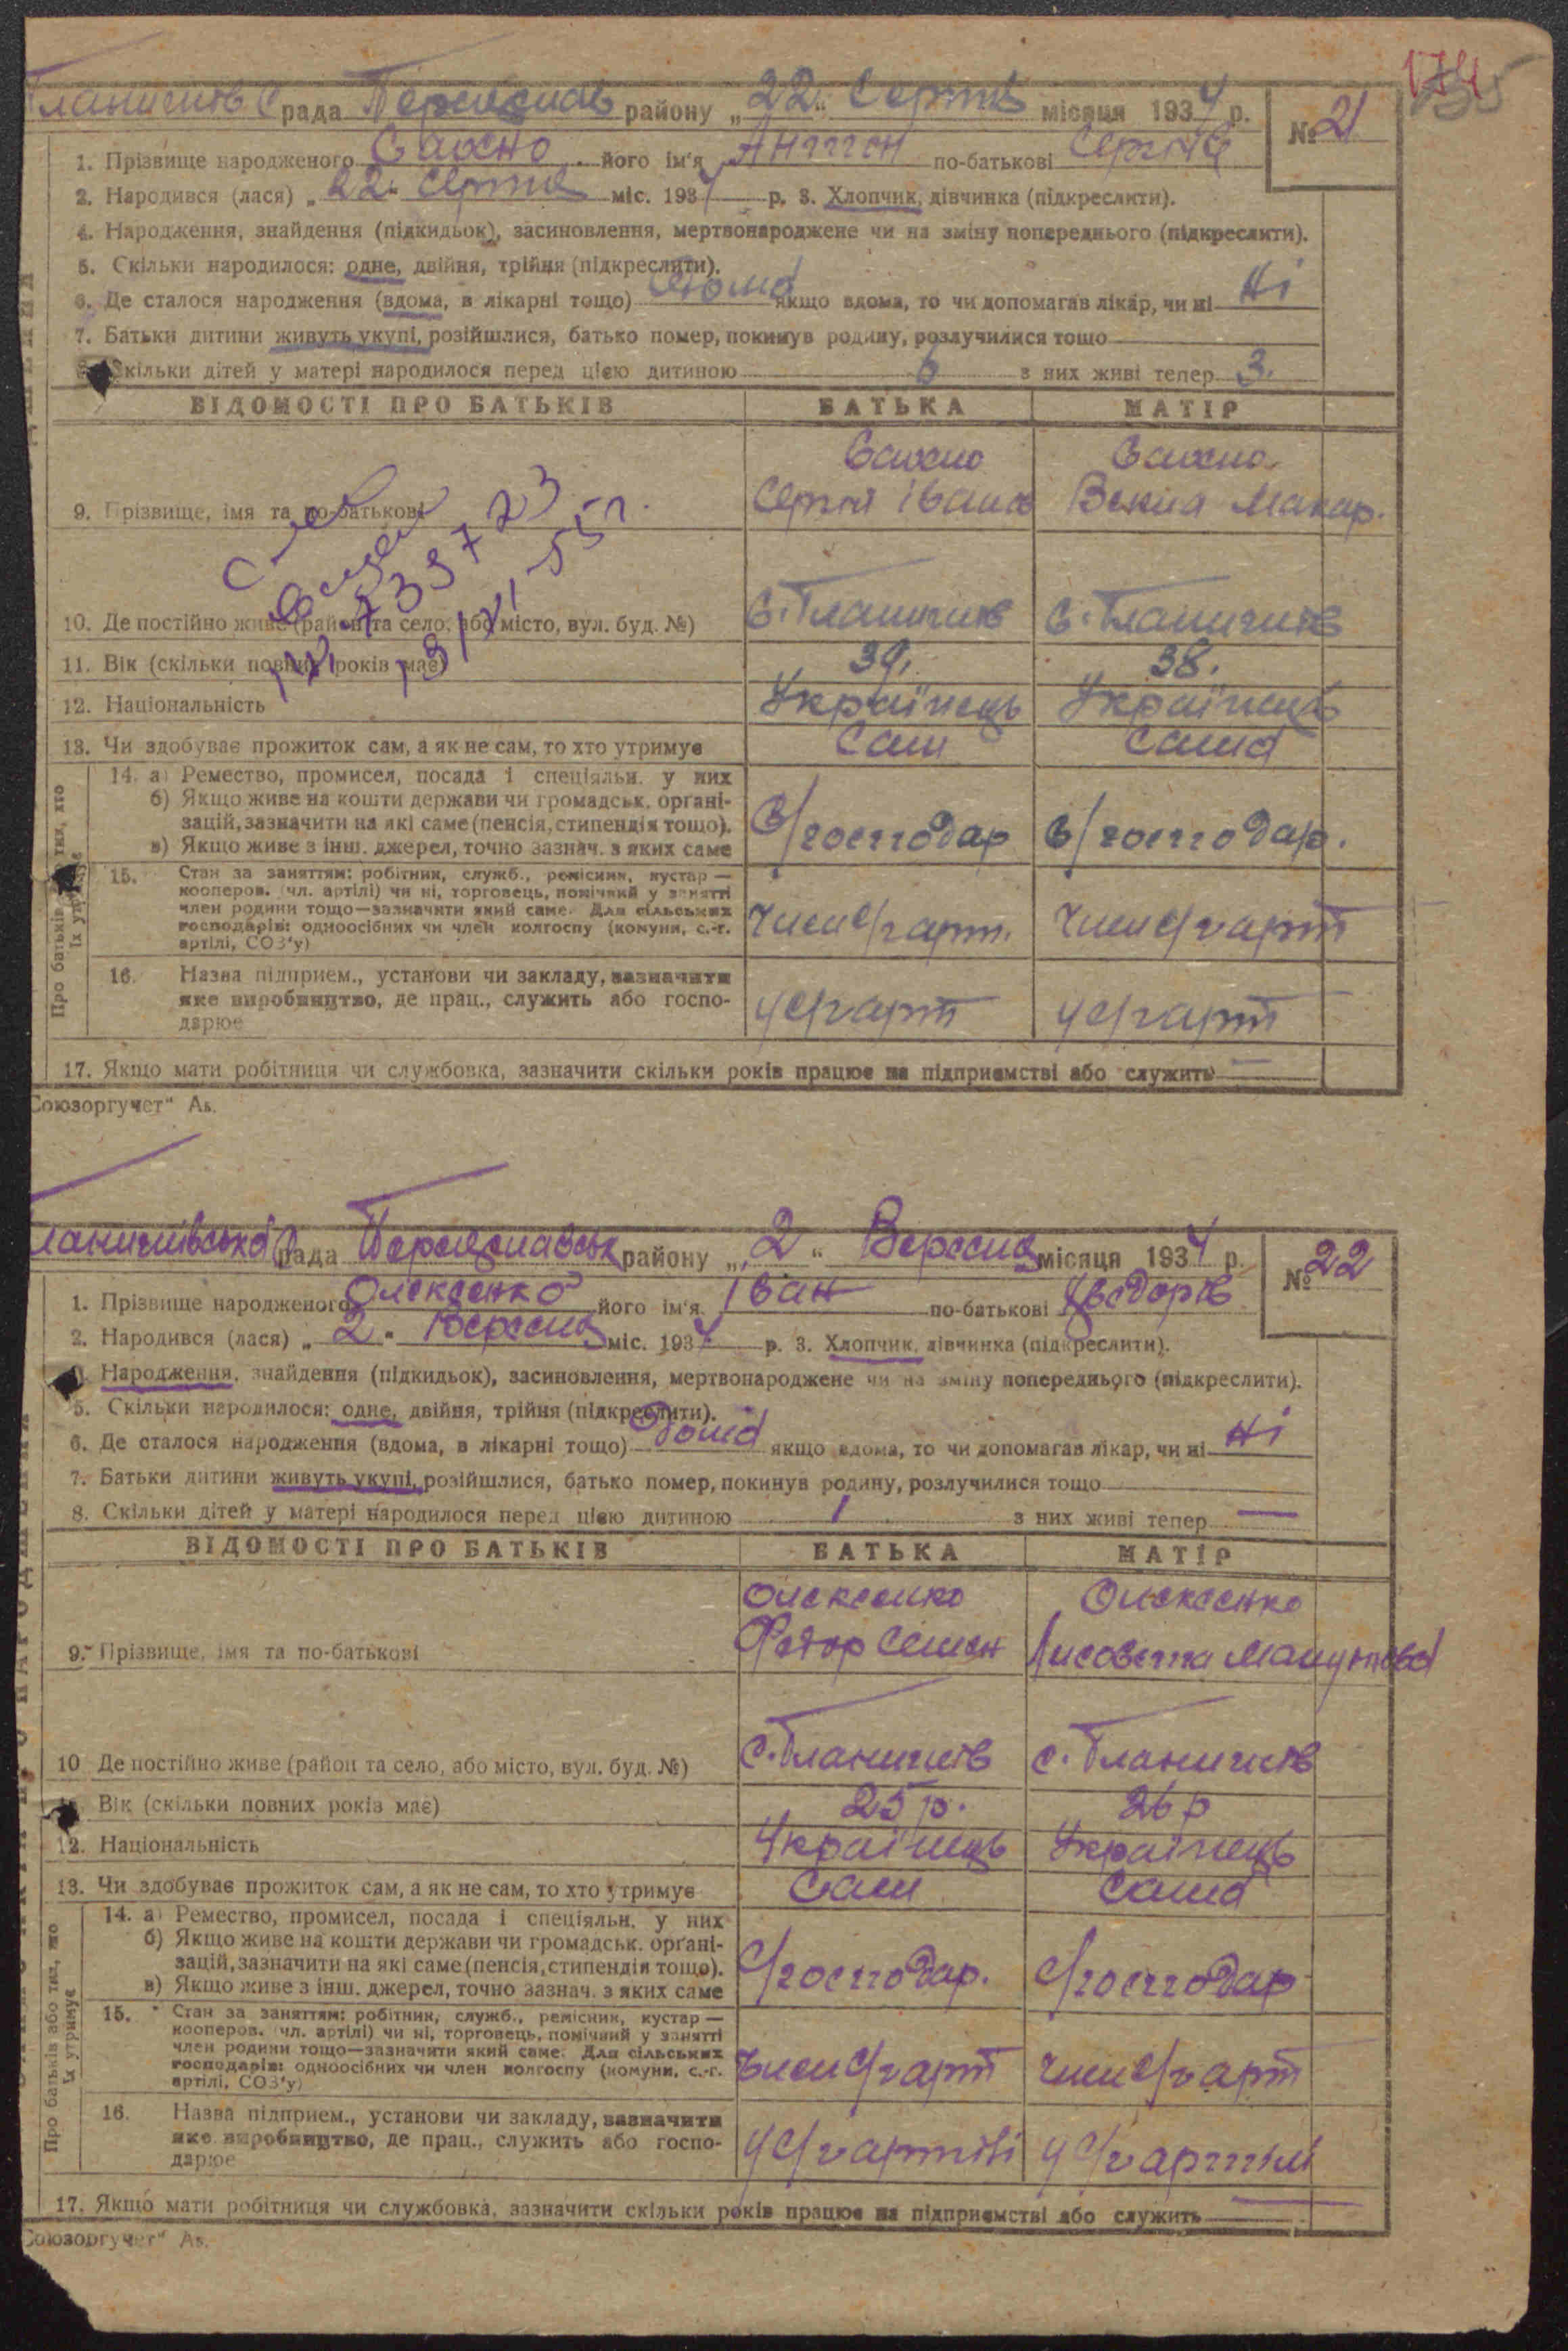 174
рада району „22“ Серпня місяця 1934 р. № 21
1. Прізвище народженого його ім'я Антон по-батькові
2. Народився (лася) „22“ Серпня міс. 1934 р. 3. Хлопчик, дівчинка (підкреслити).
4. Народження, знайдення (підкидьок), засиновлення, мертвонароджене чи на зміну попереднього (підкреслити).
5. Скільки народилося: одне, двійня, трійня (підкреслити).
6. Де сталося народження (вдома, в лікарні тощо) Дома якщо вдома, то чи допомагав лікар, чи ні Ні
7. Батьки дитини живуть укупі, розійшлися, батько помер, покинув родину, розлучилися тощо
кільки дітей у матері народилося перед цією дитиною 6 з них живі тепер 3.
ВІДОМОСТІ ПРО БАТЬКІВ БАТЬКА МАТІР
9. Прізвище, імя та по-батькові Сергій Іванов Макар.
10. Де постійно живе (район та село, або місто, вул. буд. №) с. с.
11. Вік (скільки повних років має) 39. 38.
12. Національність Українець Українець
13. Чи здобуває прожиток сам, а як не сам, то хто утримує Сам Сама
Про батьків або тих, хто їх утримує
14. а) Ремество, промисел, посада і спеціяльн. у них
б) Якщо живе на кошти держави чи громадськ. органі-
зацій, зазначити на які саме (пенсія, стипендія тощо).
в) Якщо живе з інш. джерел, точно зазнач. з яких саме С/господар С/господар.
15. Стан за заняттям: робітник, служб., ремісник, кустар —
кооперов. (чл. артілі) чи ні, торговець, помічний у занятті
член родини тощо—зазначити який саме. Для сільських
господарів: одноосібних чи член колгоспу (комуни, с.-г.
артілі, СОЗ'у) Член С/г арт. Член С/г арт
16. Назва підприєм., установи чи закладу, зазначити
яке виробництво, де прац., служить або госпо-
дарює У С/г арт У С/г арт
17. Якщо мати робітниця чи службовка, зазначити скільки років працює на підприємстві або служить
Союзоргучет“
рада району „2“ Вересня місяця 1934 р. № 22
1. Прізвище народженого Олексенко його ім'я Іван по-батькові
2. Народився (лася) „2“ Вересня міс. 1934 р. 3. Хлопчик, дівчинка (підкреслити).
Народження, знайдення (підкидьок), засиновлення, мертвонароджене чи на зміну попереднього (підкреслити).
5. Скільки народилося: одне, двійня, трійня (підкреслити).
6. Де сталося народження (вдома, в лікарні тощо) Дома якщо вдома, то чи допомагав лікар, чи ні Ні
7. Батьки дитини живуть укупі, розійшлися, батько помер, покинув родину, розлучилися тощо
8. Скільки дітей у матері народилося перед цією дитиною 1 з них живі тепер —
ВІДОМОСТІ ПРО БАТЬКІВ БАТЬКА МАТІР
Олексенко Олексенко
9. Прізвище, імя та по-батькові Федор Семен
10 Де постійно живе (район та село, або місто, вул. буд. №) с. с.
Вік (скільки повних років має) 25 р. 26 р
12. Національність Українець Українець
13. Чи здобуває прожиток сам, а як не сам, то хто утримує Сам Сама
Про батьків або тих, що їх утримує
14. а) Ремество, промисел, посада і спеціяльн. у них
б) Якщо живе на кошти держави чи громадськ. органі-
зацій, зазначити на які саме (пенсія, стипендія тощо).
в) Якщо живе з інш. джерел, точно зазнач. з яких саме С/господар. С/господар
15. Стан за заняттям: робітник, служб., ремісник, кустар —
кооперов. (чл. артілі) чи ні, торговець, помічний у занятті
член родини тощо—зазначити який саме. Для сільських
господарів: одноосібних чи член колгоспу (комуни, с.-г.
артілі, СОЗ'у) Член С/г арт Член С/г арт
16. Назва підприєм., установи чи закладу, зазначити
яке виробництво, де прац., служить або госпо-
дарює У С/г артілі У С/г артілі
17. Якщо мати робітниця чи службовка, зазначити скільки років працює на підприємстві або служить —
Союзоргучет“